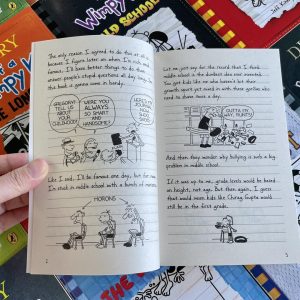 The only reason I agreed to do this at all is
because I figure later on when I'm rich and
famous, I'll have better things to do than
answer people's stupid questions all day long. So
this book is gonna come in handy.
GREGORY!
TELL US
ABOUT YOUR
CHILDHOOD!
WERE YOU
ALWAYS
SO SMART
AND
HANDSOME?
Like I said, I'll be famous one day, but for now
I'm stuck in middle school with a bunch of morons.
MORONS
2
Let me just say for the record that I think
middle school is the dumbest idea ever invented.
You got kids like me who haven't hit their
growth spurt yet mixed in with these gorillas who
need to shave twice a day.
OUTTA MY
WAY, RUNTS!
And then they wonder why bullying is such a big
problem in middle school.
If it was up to me, grade levels would be based
on height, not age. But then again, I guess
that would mean kids like Chirag Gupta would
still be in the first grade.
3